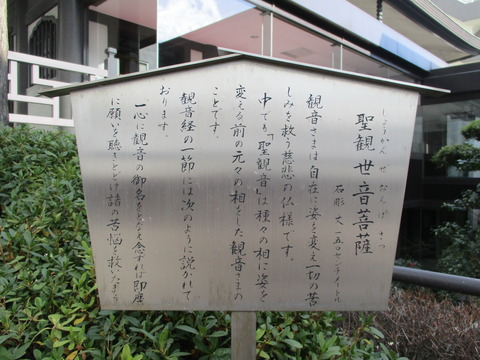 しょうかんせおんぼさつ
聖観世音菩薩
石彫 丈 一五0センチメートル
観音さまは自在に姿を変え一切の苦
しみを救う慈悲の仏様です。
中でも「聖観音」は種々の相に姿を
変える前の元々の相をした観音さまの
ことです。
観音経の一節には次のように説かれて
おります。
一心に観音の御名をとなえ念ずれば即座
に願いを聴きとどけ諸の苦悩を救いたまう